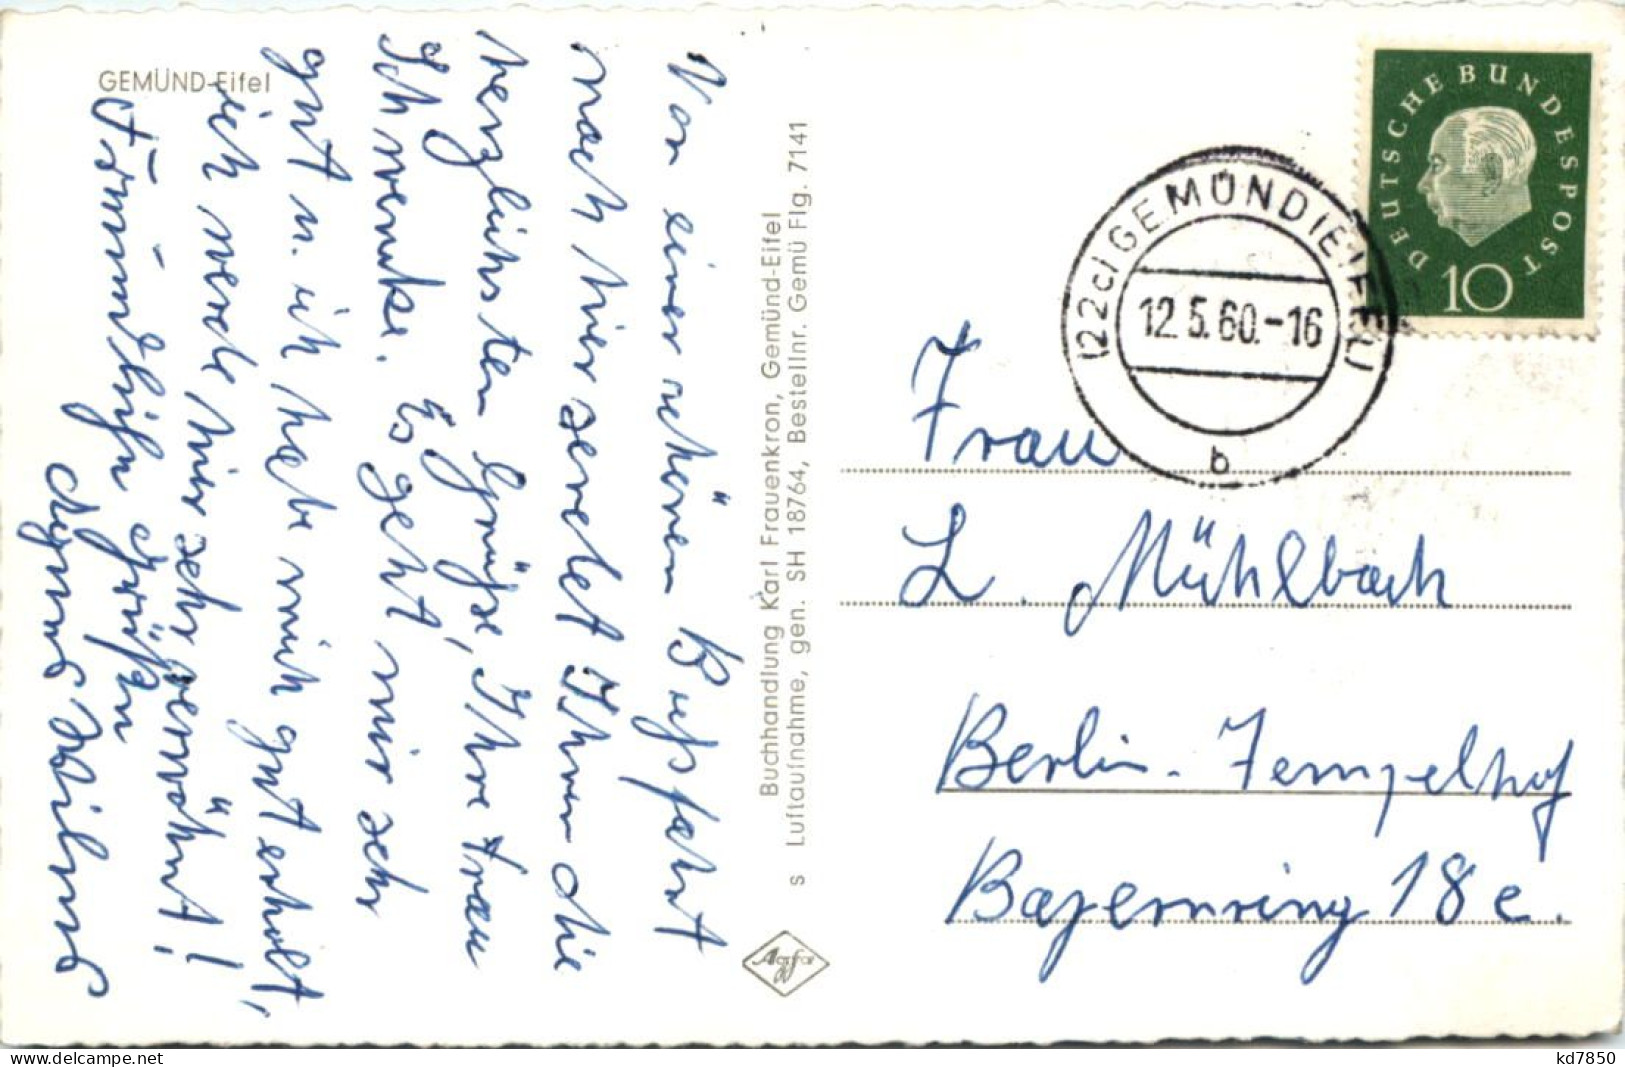 GEMÜND-Eifel
Von einer schönen Bußfahrt
nach hier sendet Ihnen die
herzlichsten Grüße, Ihre Frau
Schwenke. Es geht mir sehr
gut u. ich habe mich gut erholt,
ich werde hier sehr verwöhnt!
Freundlichen Grüßen
Buchhandlung Karl Frauenkron, Gemünd-Eifel
s Luftaufnahme, gen. SH 18764, Bestellnr. Gemü Flg. 7141
Agfa
DEUTSCHE BUNDESPOST
10
(22c) GEMÜND (EIFEL)
12.5.60.-16
b
Frau
L. Mühlbach
Berlin-Tempelhof
Bayernring 18e.
www.delcampe.net
kd7850